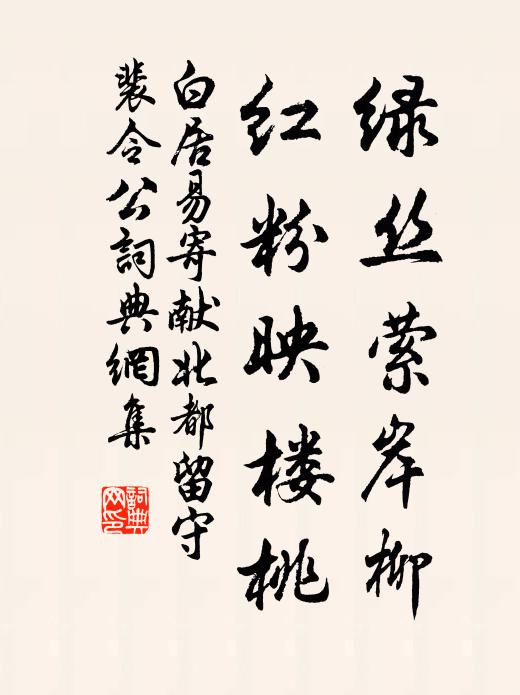 绿丝萦岸柳
红粉映楼桃
白居易寄献北都留守
裴令公詞典網集
詞典网印